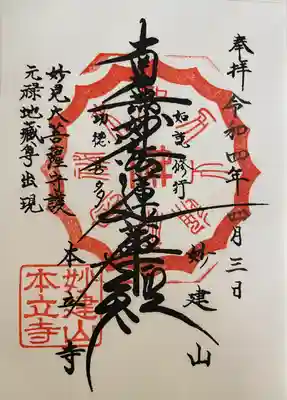 奉拝 令和四年四月三日
妙建山
如説修行
南無妙法蓮華経
功徳甚多
本立寺
妙見大菩薩守護
元禄地蔵尊出現
妙建山
本立寺